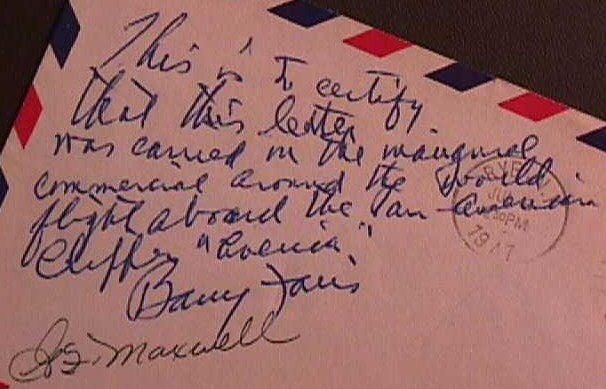 This is to certify
that this letter
was carried on the inaugural
commercial around the world
flight aboard the Pan American
Clipper "America"
Barry Faris
Maxwell
JU
PM
1947